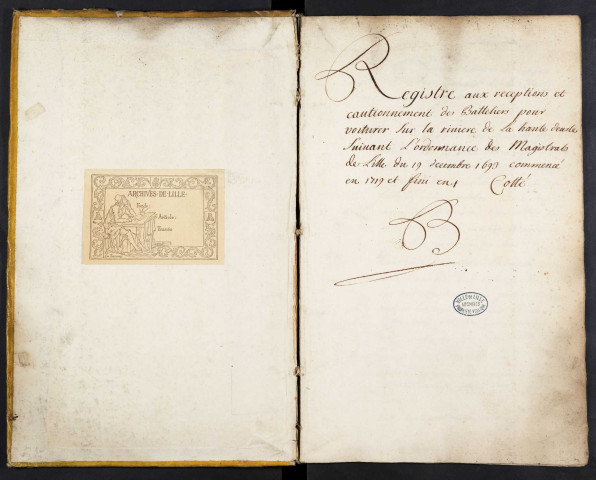 ARCHIVES·DE·LILLE·
Fonds:
Article:
Numéro
Registre aux receptions et
cautionnement des Batteliers pour
voiturer sur la riviere de la haute deusle
Suivant L'ordonnance des Magistrats
de Lille du 19 decembre 1693 commencé
en 1719 et fini en Cotté
B
VILLE DE LILLE
ARCHIVES